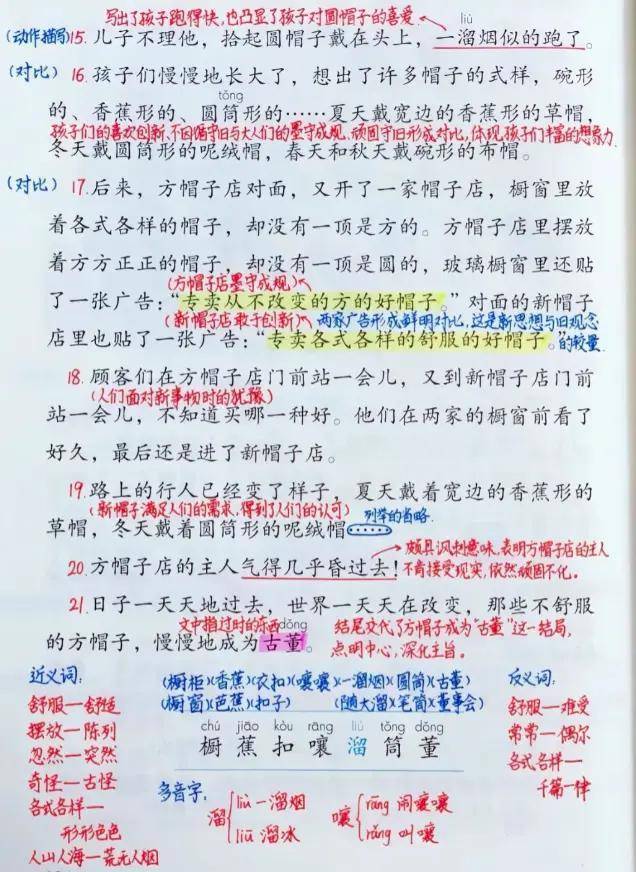 写出了孩子跑得快,也凸显了孩子对圆帽子的喜爱
liù
(动作描写)15.儿子不理他，拾起圆帽子戴在头上，一溜烟似的跑了。
(对比) 16.孩子们慢慢地长大了，想出了许多帽子的式样，碗形
tǒng
的、香蕉形的、圆筒形的……夏天戴宽边的香蕉形的草帽，
孩子们的喜欢创新,不因循守旧与大人们的墨守成规、顽固守旧形成对比,体现孩子们丰富的想象力.
冬天戴圆筒形的呢绒帽，春天和秋天戴碗形的布帽。
(对比) 17.后来，方帽子店对面，又开了一家帽子店，橱窗里放
着各式各样的帽子，却没有一顶是方的。方帽子店里摆放
着方方正正的帽子，却没有一顶是圆的，玻璃橱窗里还贴
(方帽子店墨守成规)
了一张广告：“专卖从不改变的方的好帽子。”对面的新帽子
(新帽子店敢于创新) 两家广告形成鲜明对比,这是新思想与旧观念
店里也贴了一张广告：“专卖各式各样的舒服的好帽子。 的较量.
18.顾客们在方帽子店门前站一会儿，又到新帽子店门前
(人们面对新事物时的犹豫)
站一会儿，不知道买哪一种好。他们在两家的橱窗前看了
好久，最后还是进了新帽子店。
19.路上的行人已经变了样子，夏天戴着宽边的香蕉形的
(新帽子满足人们的需求,得到了人们的认可) 列举的省略.
草帽，冬天戴着圆筒形的呢绒帽……
颇具讽刺意味,表明方帽子店的主人
20.方帽子店的主人气得几乎昏过去！不肯接受现实,依然顽固不化。
21.日子一天天地过去，世界一天天在改变，那些不舒服
文中指过时的东西 dǒng 结尾交代了方帽子成为“古董”这一结局,
的方帽子，慢慢地成为古董。 点明中心,深化主旨。
近义词:
舒服—舒适
摆放—陈列
忽然—突然
奇怪—古怪
各式各样—
形形色色
人山人海—荒无人烟
(橱柜)(香蕉)(衣扣)(嚷嚷)(一溜烟)(圆筒)(古董)
(橱窗)(芭蕉)(扣子) (随大溜)(笔筒)(董事会)
chú jiāo kòu rāng liù tǒng dǒng
橱 蕉 扣 嚷 溜 筒 董
多音字:
溜 liù 一溜烟
liū 溜冰
嚷 rāng 闹嚷嚷
rǎng 叫嚷
反义词:
舒服—难受
常常—偶尔
各式各样—
千篇一律